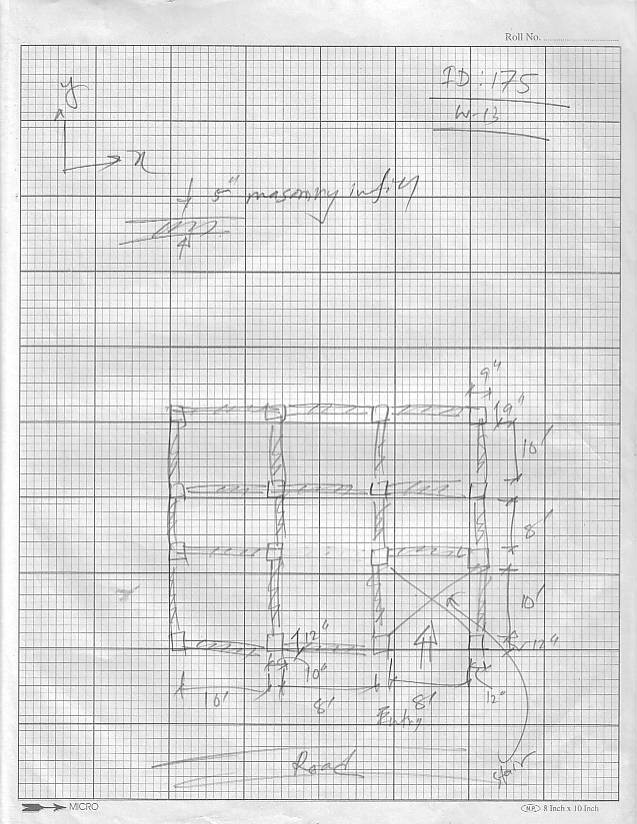 Roll No.
ID: 175
W-13
y
x
5" masonry infill
9"
9"
10'
8'
10'
12"
12"
10"
12"
10'
8'
8'
Entry
Road
Stair
MICRO
M.P. 8 Inch x 10 Inch